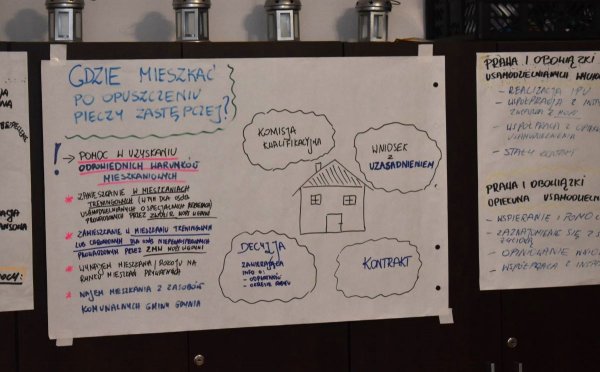 GDZIE MIESZKAĆ
PO OPUSZCZENIU
PIECZY ZASTĘPCZEJ?
! → POMOC W UZYSKANIU
ODPOWIEDNICH WARUNKÓW
MIESZKANIOWYCH
* ZAMIESZKANIE W MIESZKANIACH
TRENINGOWYCH (W TYM DLA OSÓB
USAMODZIELNIANYCH O SPECJALNYCH POTRZEBACH)
PROWADZONYCH PRZEZ
* ZAMIESZKANIE W MIESZKANIU TRENINGOWYM
LUB CHRONIONYM DLA OSÓB NIEPEŁNOSPRAWNYCH
PROWADZONYM PRZEZ
* WYNAJEM MIESZKANIA / POKOJU NA
RYNKU MIESZKAŃ PRYWATNYCH
* NAJEM MIESZKANIA Z ZASOBÓW
KOMUNALNYCH GMINY GDYNIA
KOMISJA
KWALIFIKACYJNA
WNIOSEK
Z
UZASADNIENIEM
DECYZJA
ZAWIERAJĄCA
INFO O:
- ODPŁATNOŚĆ
- OKRESIE POBYTU
KONTRAKT
PRAWA I OBOWIĄZKI
USAMODZIELNIANYCH
- REALIZACJA IPU
- WSPÓŁPRACA Z
- WSPÓŁPRACA Z
USAMODZIELNIENIA
- STAŁY KONTAKT
PRAWA I OBOWIĄZKI
OPIEKUNA
- WSPIERANIE I
- ZAZNAJOMIENIE SIĘ Z
- OPINIOWANIE
- WSPÓŁPRACA Z